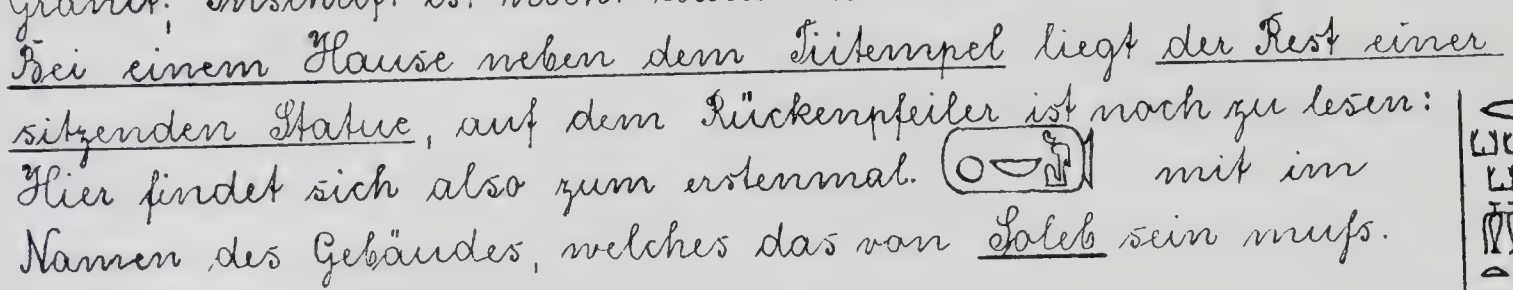 Bei einem Hause neben dem Tiitempel liegt der Rest einer
sitzenden Statue, auf dem Rückenpfeiler ist noch zu lesen:
Hier findet sich also zum erstenmal. mit im
Namen des Gebäudes, welches das von Soleb sein mufs.